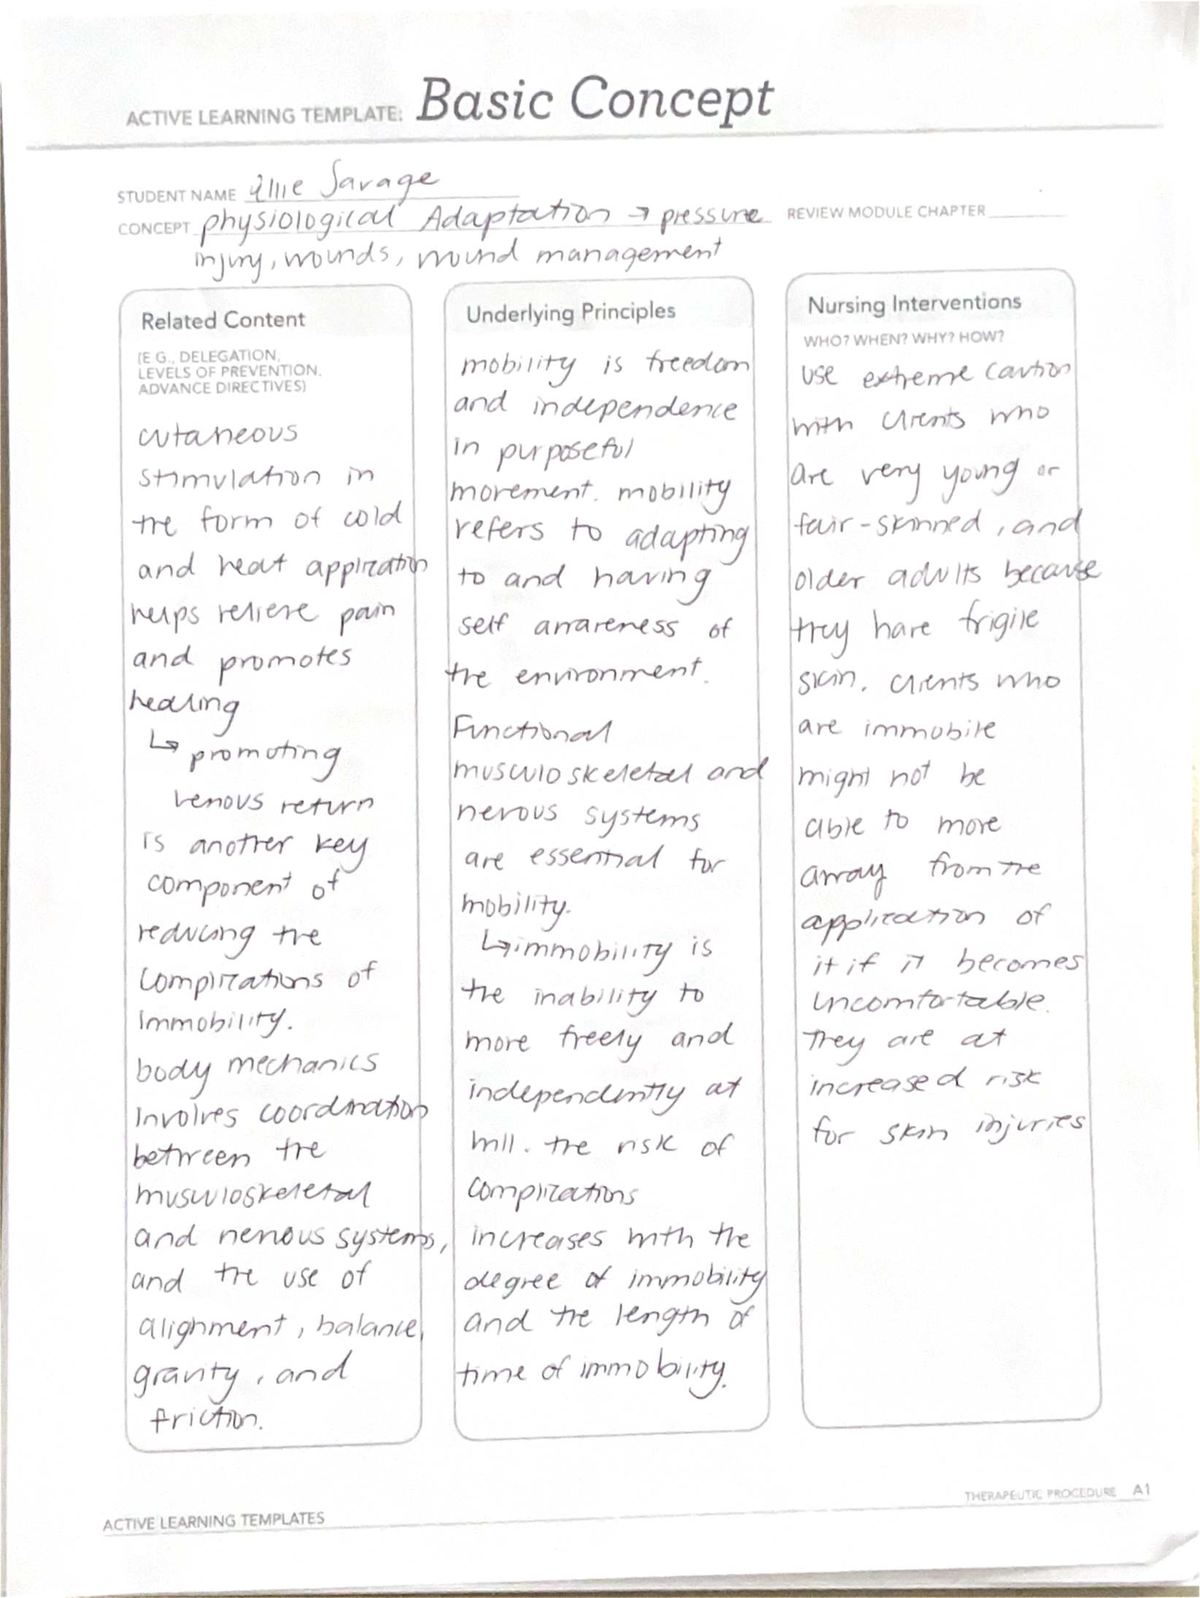 ACTIVE LEARNING TEMPLATE: Basic Concept
STUDENT NAME Ellie Savage
CONCEPT physiological Adaptation → pressure REVIEW MODULE CHAPTER
injury, wounds, wound management
Related Content
(E G., DELEGATION,
LEVELS OF PREVENTION,
ADVANCE DIRECTIVES)
cutaneous
stimulation in
the form of cold
and heat application
helps relieve pain
and promotes
healing
↳ promoting
venous return
is another key
component of
reducing the
complications of
immobility.
body mechanics
involves coordination
between the
musculoskeletal
and nervous systems,
and the use of
alignment, balance,
gravity, and
friction.
Underlying Principles
mobility is freedom
and independence
in purposeful
movement. mobility
refers to adapting
to and having
self awareness of
the environment.
Functional
musculoskeletal and
nervous systems
are essential for
mobility.
↳ immobility is
the inability to
move freely and
independently at
will. the risk of
complications
increases with the
degree of immobility
and the length of
time of immobility.
Nursing Interventions
WHO? WHEN? WHY? HOW?
use extreme caution
with clients who
are very young or
fair-skinned, and
older adults because
they have frigile
skin. clients who
are immobile
might not be
able to move
away from the
application of
it if it becomes
uncomfortable.
They are at
increased risk
for skin injuries
THERAPEUTIC PROCEDURE A1
ACTIVE LEARNING TEMPLATES